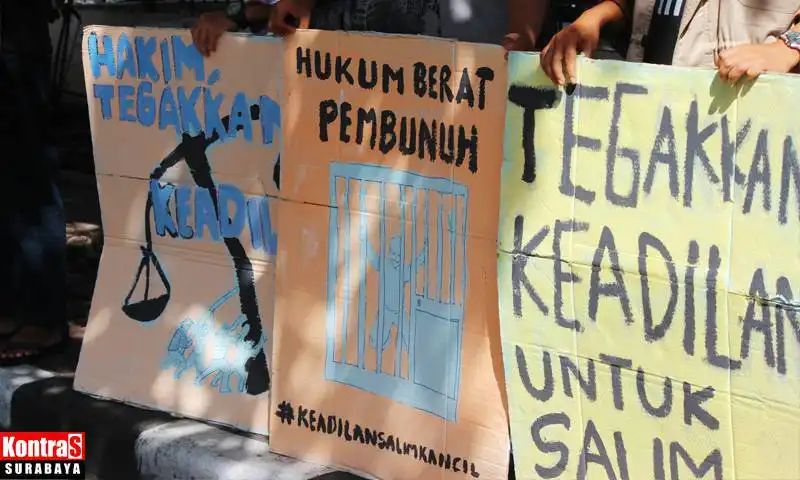 HAKIM,
TEGAKKAN
KEADIL
HUKUM BERAT
PEMBUNUH
#KEADILANSALIMKANCIL
TEGAKKAN
KEADILAN
UNTUK
SALIM
KontraS
SURABAYA